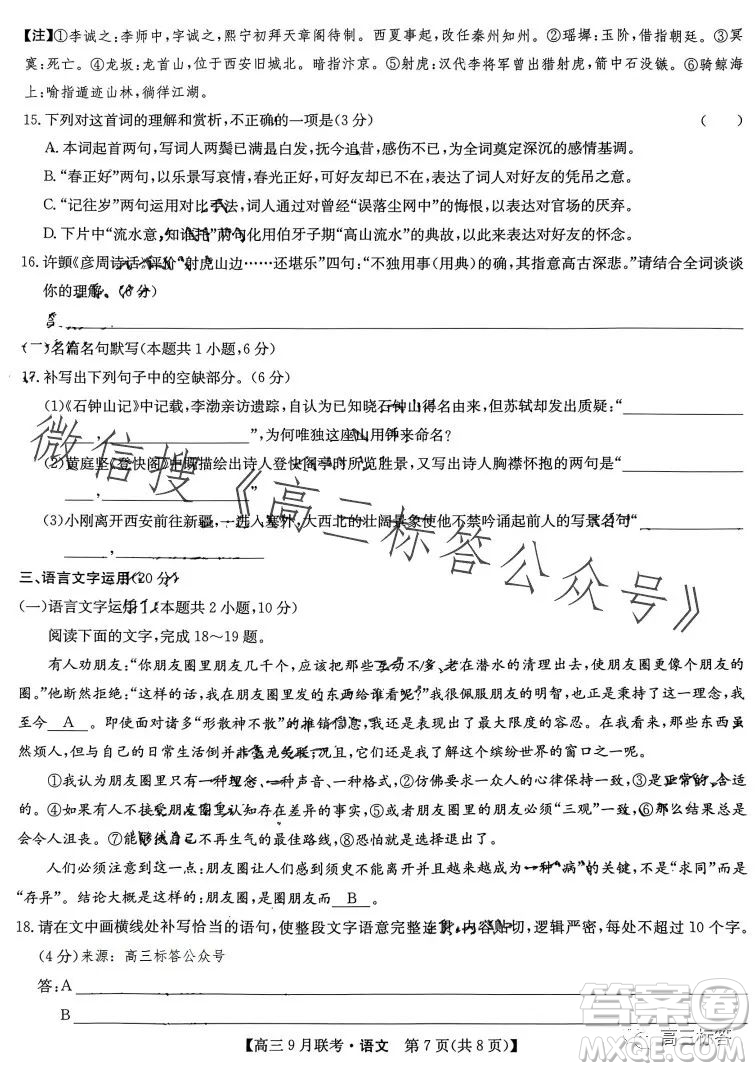 【注】①李诚之：李师中，字诚之，熙宁初拜天章阁待制。西夏事起，改任秦州知州。②瑶墀：玉阶，借指朝廷。③冥
寞：死亡。④龙坂：龙首山，位于西安旧城北。⑤射虎：汉代李将军曾出猎射虎，箭中石没镞。⑥骑鲸海
上：喻指遁迹山林，徜徉江湖。
15.下列对这首词的理解和赏析，不正确的一项是(3分) ( )
A.本词起首两句，写词人两鬓已满是白发，抚今追昔，感伤不已，为全词奠定深沉的感情基调。
B.“春正好”两句，以乐景写哀情，春光正好，可好友却已不在，表达了词人对好友的凭吊之意。
C.“记往岁”两句运用对比手法，词人对曾经“误落尘网中”的悔恨，表达对官场的厌弃。
D.下片中“流水意，知谁托”两句化用伯牙子期“高山流水”的典故，以此表达对好友的怀念。
16.许顗《彦周诗话》评价“射虎山边……还堪乐”四句：“不独用事(用典)的确，其指意高古深悲。”请结合全词谈谈
你的理解。(6分)
答：
名篇名句默写(本题共1小题，6分)
17.补写出下列句子中的空缺部分。(6分)
(1)《石钟山记》中记载，李渤亲访遗踪，自以为已知晓石钟山得名由来，但苏轼却发出质疑：“
，”，为何唯独这座山用钟来命名？
(2)黄庭坚《登快阁》中既描绘出诗人登快阁亭时所览胜景，又写出诗人胸襟怀抱的两句是“
，”。
(3)小刚离开西安前往新疆，一进入塞外，大西北的壮阔景象使他不禁吟诵起前人的写景名句“
，”。
三、语言文字运用(20分)
(一)语言文字运用Ⅰ(本题共2小题，10分)
阅读下面的文字，完成18～19题。
有人劝朋友：“你朋友圈里朋友几千个，应该把那些从来互动不了、老在潜水的清理出去，使朋友圈更像个朋友的
圈。”他断然拒绝：“这样的话，我在朋友圈里发的东西给谁看呢？”我很佩服朋友的明智，暂且把它定义成这一理念，我
至今 A 。即使面对诸多“形散神不散”的推销信息，我对朋友圈也表现出了最大限度的容忍。那些东西虽
然烦人，但与自己的日常生活倒也能互为补充关联，况且，它们也是我了解这个缤纷世界的窗口之一呢！
①我认为朋友圈里只有一种理念、一种声音、一种格式，②仿佛要求一众人的心律保持一致，③是正常的、合适
的。④如果有人不接受朋友圈认知存在差异的事实，⑤或者觉得朋友圈里的朋友必须“三观”一致，⑥那么结果总是
会令人沮丧。⑦能够找到自己不再生气的最佳路线，⑧恐怕就是果断退出朋友圈了。
人们必须注意到这一点：朋友圈让人们感到须臾不可离开且越来越变成一种“病”的关键，不是“求同”而是
“存异”。结论大概是这样的：朋友圈可以开出 B 。
18.请在文中画横线处补写恰当的语句，使整段文字语意完整连贯，内容贴切，逻辑严密，每处不超过10个字。
(4分)来源：高三标答公众号
答：A
B
【高三9月联考·语文 第7页(共8页)】
微信搜《高三标答公众号》
答案圈
高三标答